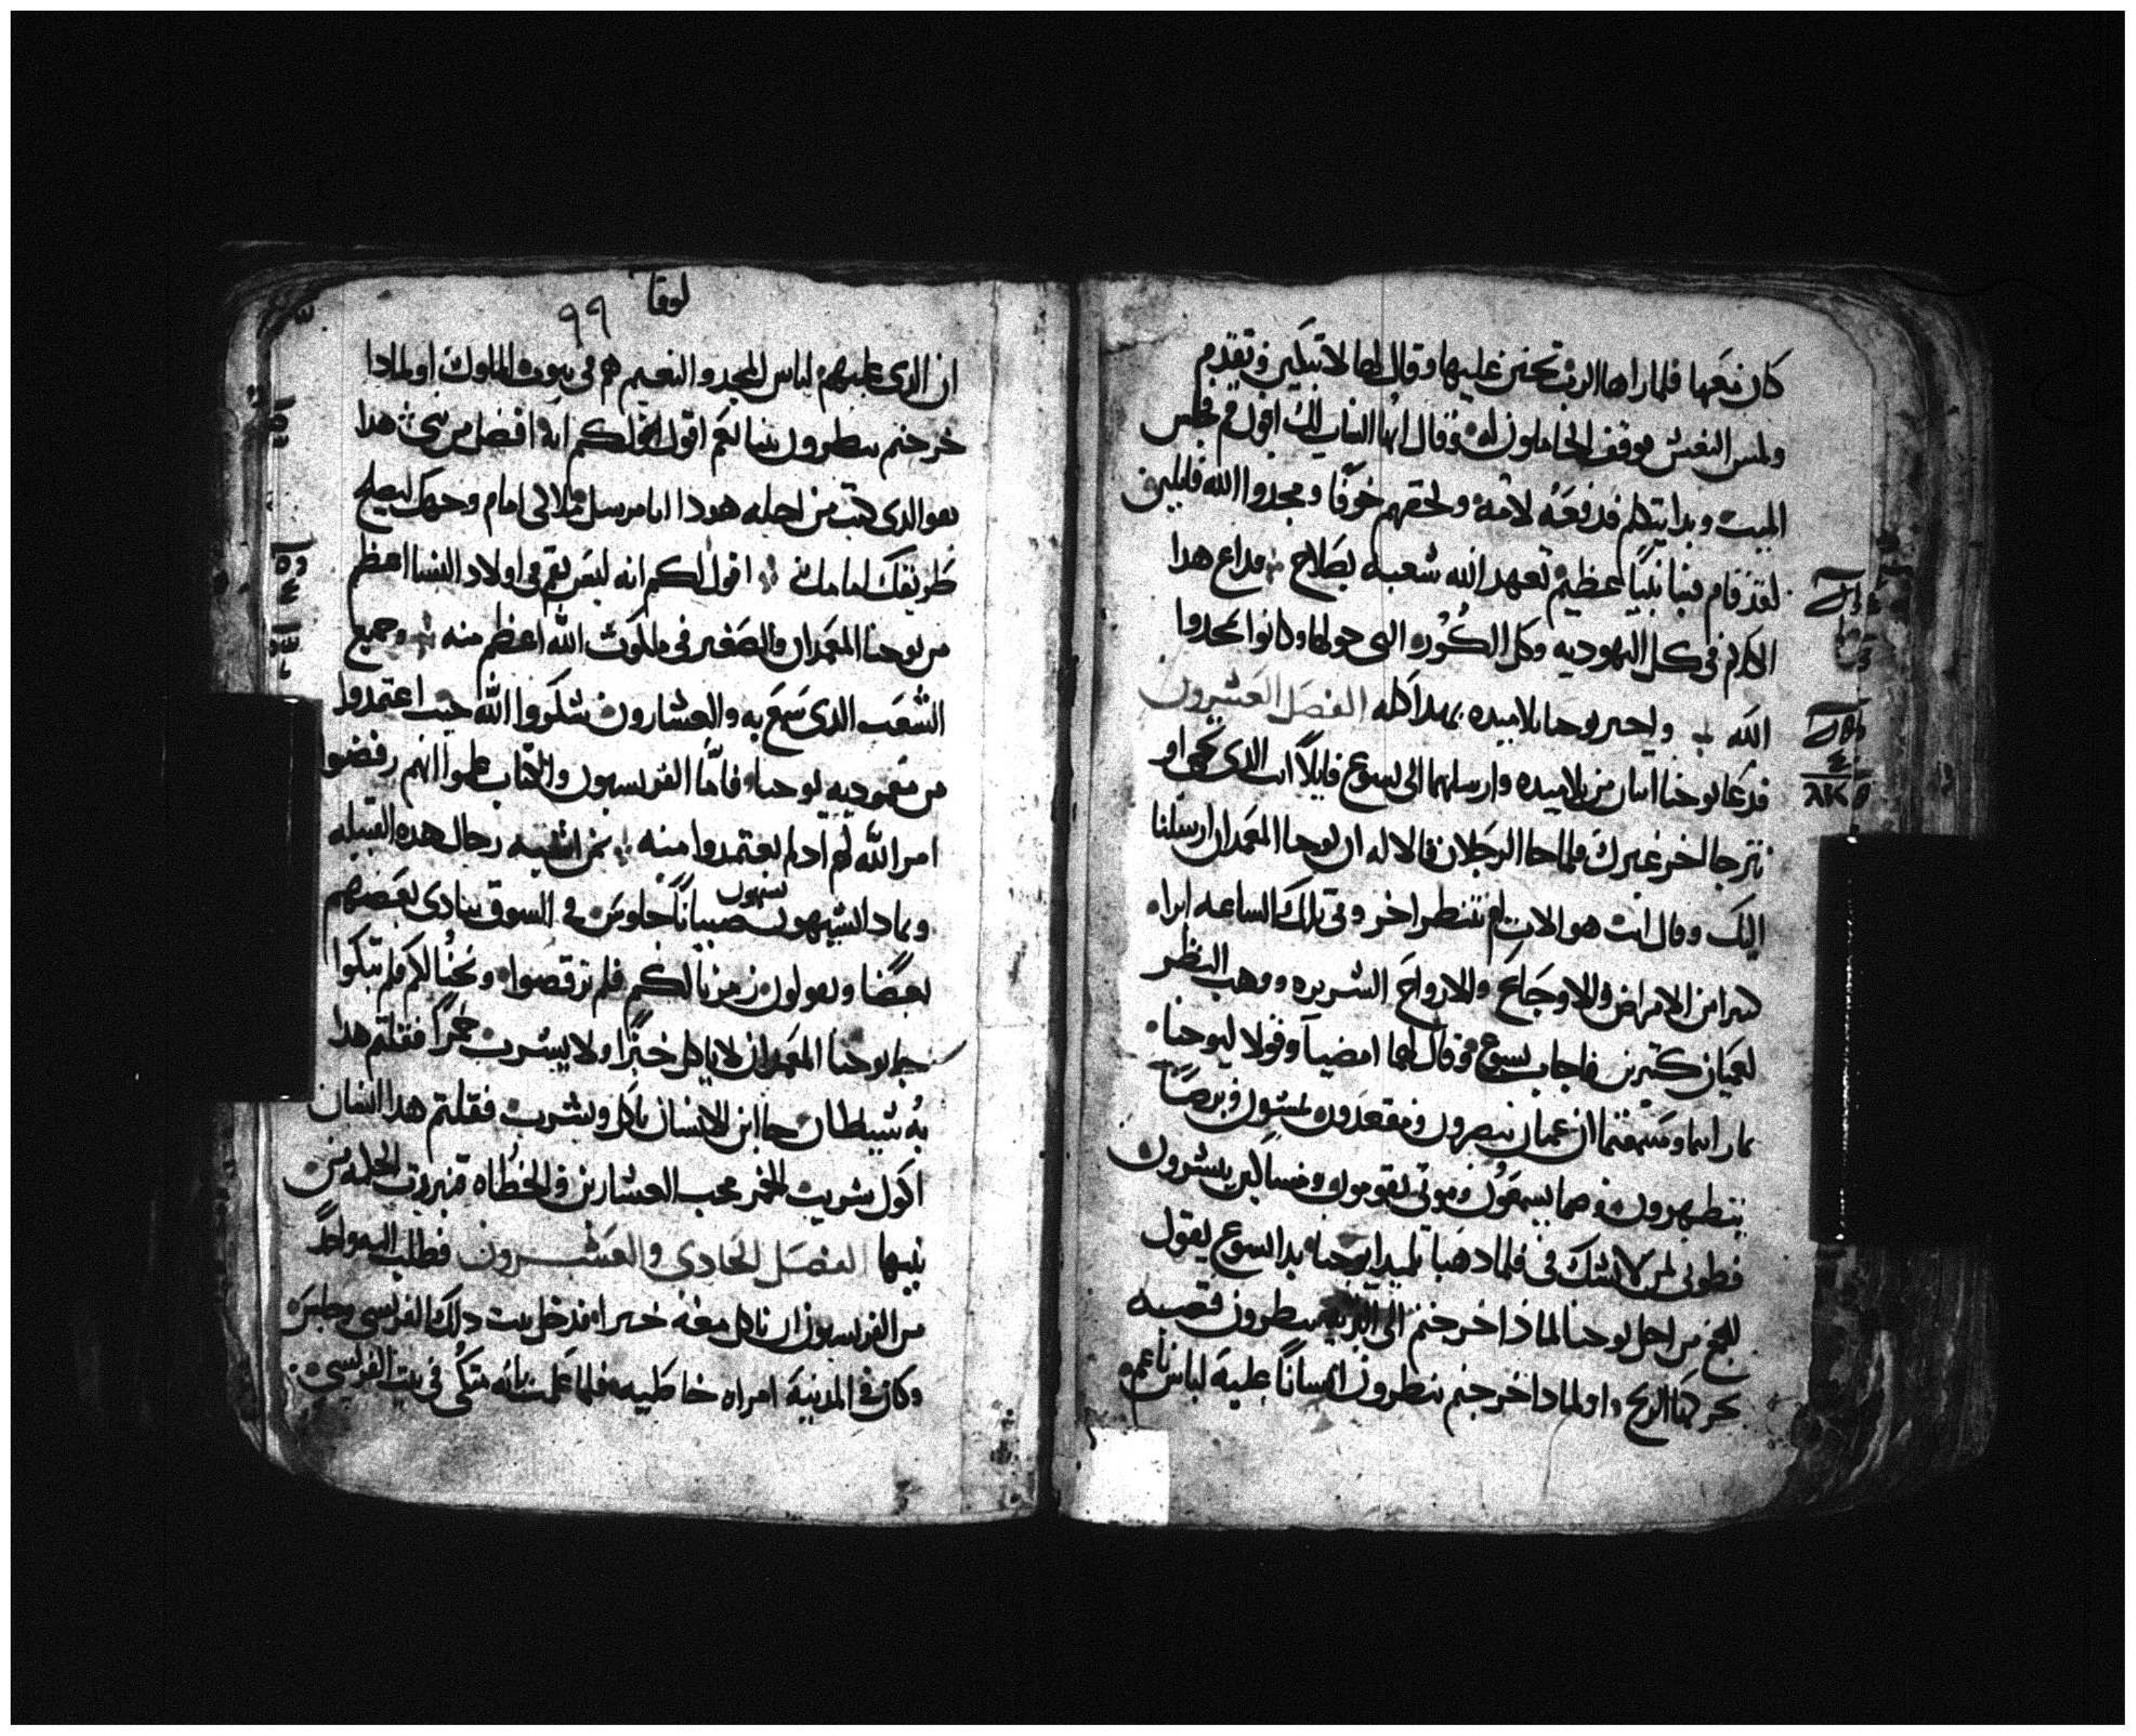 كان معها فلما راها الرب تحنن عليها وقال لها لا تبكين وتقدم
ولمس النعش فوقف الحاملون له وقال ايها الشاب لك اقول قم فجلس
الميت وبدا يتكلم فدفعه لامه ولحقهم خوفًا ومجدوا الله قايلين
لقد قام فينا نبيًا عظيم تعهد الله شعبه بصلاح فداع هدا
الكلام في كل اليهوديه وكل الكوره التي حولها وكانوا يمجدوا
الله واخبر يوحنا تلاميده بهدا كله الفصل العشرون
فدعا يوحنا اتنان من تلاميده وارسلهما الى يسوع قايلًا انت الدي تجي او
نترجا اخر غيرك فلما جا الرجلان قالا له ان يوحنا المعمدان ارسلنا
اليك وقال انت هو الات ام ننتظر اخر وفي تلك الساعه ابراء
كثيرا من الامراض والاوجاع والارواح الشريره ووهب النظر
لعميان كتيرين فاجاب يسوع وقال لهما امضيا وقولا ليوحنا
بما رايتما وسمعتما ان عميان يبصرون ومقعدون يمشون وبرصًا
يتطهرون وصما يسمعون وموتى يقومون ومساكين يبشرون
فطوبى لمن لا يشك في فلما دهبا تلميدا يوحنا بدا يسوع يقول
للجمع من اجل يوحنا لماذا خرجتم الى البريه تنظرون قصبه
تحركها الريح اولمادا خرجتم تنظرون انسانًا عليه لباس ناعم
لوقا
٩٩
ان الدي عليهم لباس المجد والنعيم هم في بيوت الملوك اولمادا
خرجتم تنظرون نبيا نعم اقول لكم انه افضل من نبي هدا
هو الدي كتب من اجله هودا انا مرسل ملاكي امام وجهك ليصلح
طريقك امامك اقول لكم انه ليس يقم في اولاد النسا اعظم
من يوحنا المعمدان والصغير في ملكوت الله اعظم منه وجميع
الشعب الدي سمع به والعشارون شكروا الله حيث اعتمدوا
من معموديه يوحنا فاما الفريسيون والكتاب علموا انهم رفضوا
امر الله لهم اد لم يعتمدوا منه بمن اشبه رجال هده القبيله
وبمادا يشبهون يشبهون صبيانًا جلوس في السوق ينادي بعضهم
بعضًا ويقولون زمرنا لكم فلم ترقصوا ونحنا لكم فلم تبكوا
جا يوحنا المعمدان لا ياكل خبزًا ولا يشرب خمرًا فقلتم هدا
به شيطان جا ابن الانسان ياكل ويشرب فقلتم هدا انسان
اكول شريب الخمر محب العشارين والخطاه تبررت الحكمه من
بنيها الفصل الحادي والعشرون فطلب اليه واحدً
من الفريسيون ان ياكل معه خبزا فدخل بيت دلك الفريسي وجلس
وكان في المدينه امراه خاطييه فلما علمت بانه متكي في بيت الفريسي